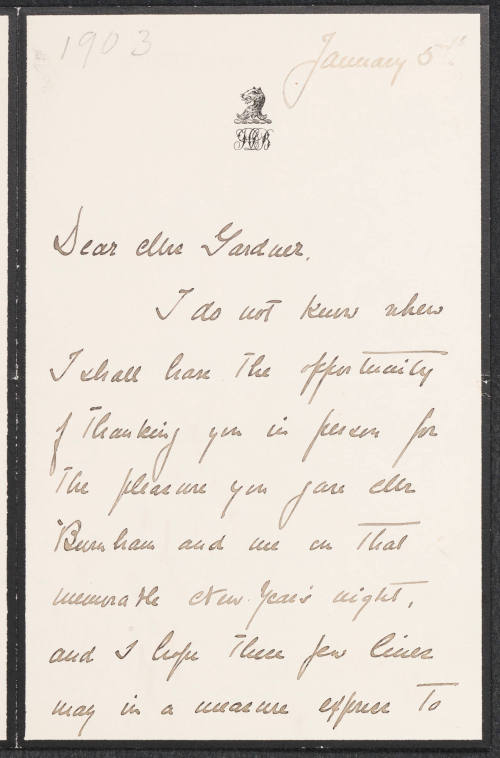 1903
January 5th
Dear Mrs Gardner,
I do not know when
I shall have the opportunity
of thanking you in person for
the pleasure you gave Mr
Burnham and me on that
memorable New Year's night,
and I hope these few lines
may in a measure express to